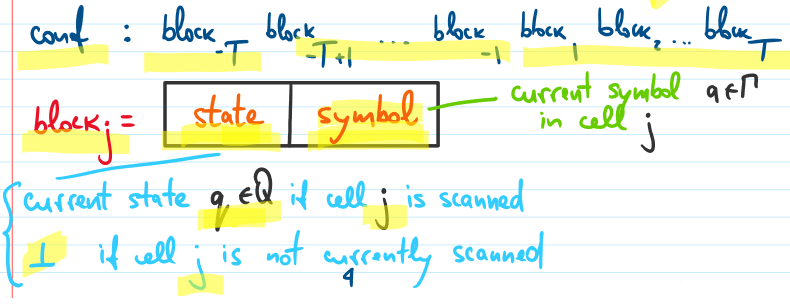 conf : block_-T block_-T+1 ... block_-1 block_1 block_2 ... block_T
block_j = state symbol current symbol a ∈ Γ
in cell j
current state q ∈ Q if cell j is scanned
⊥ if cell j is not currently scanned
4